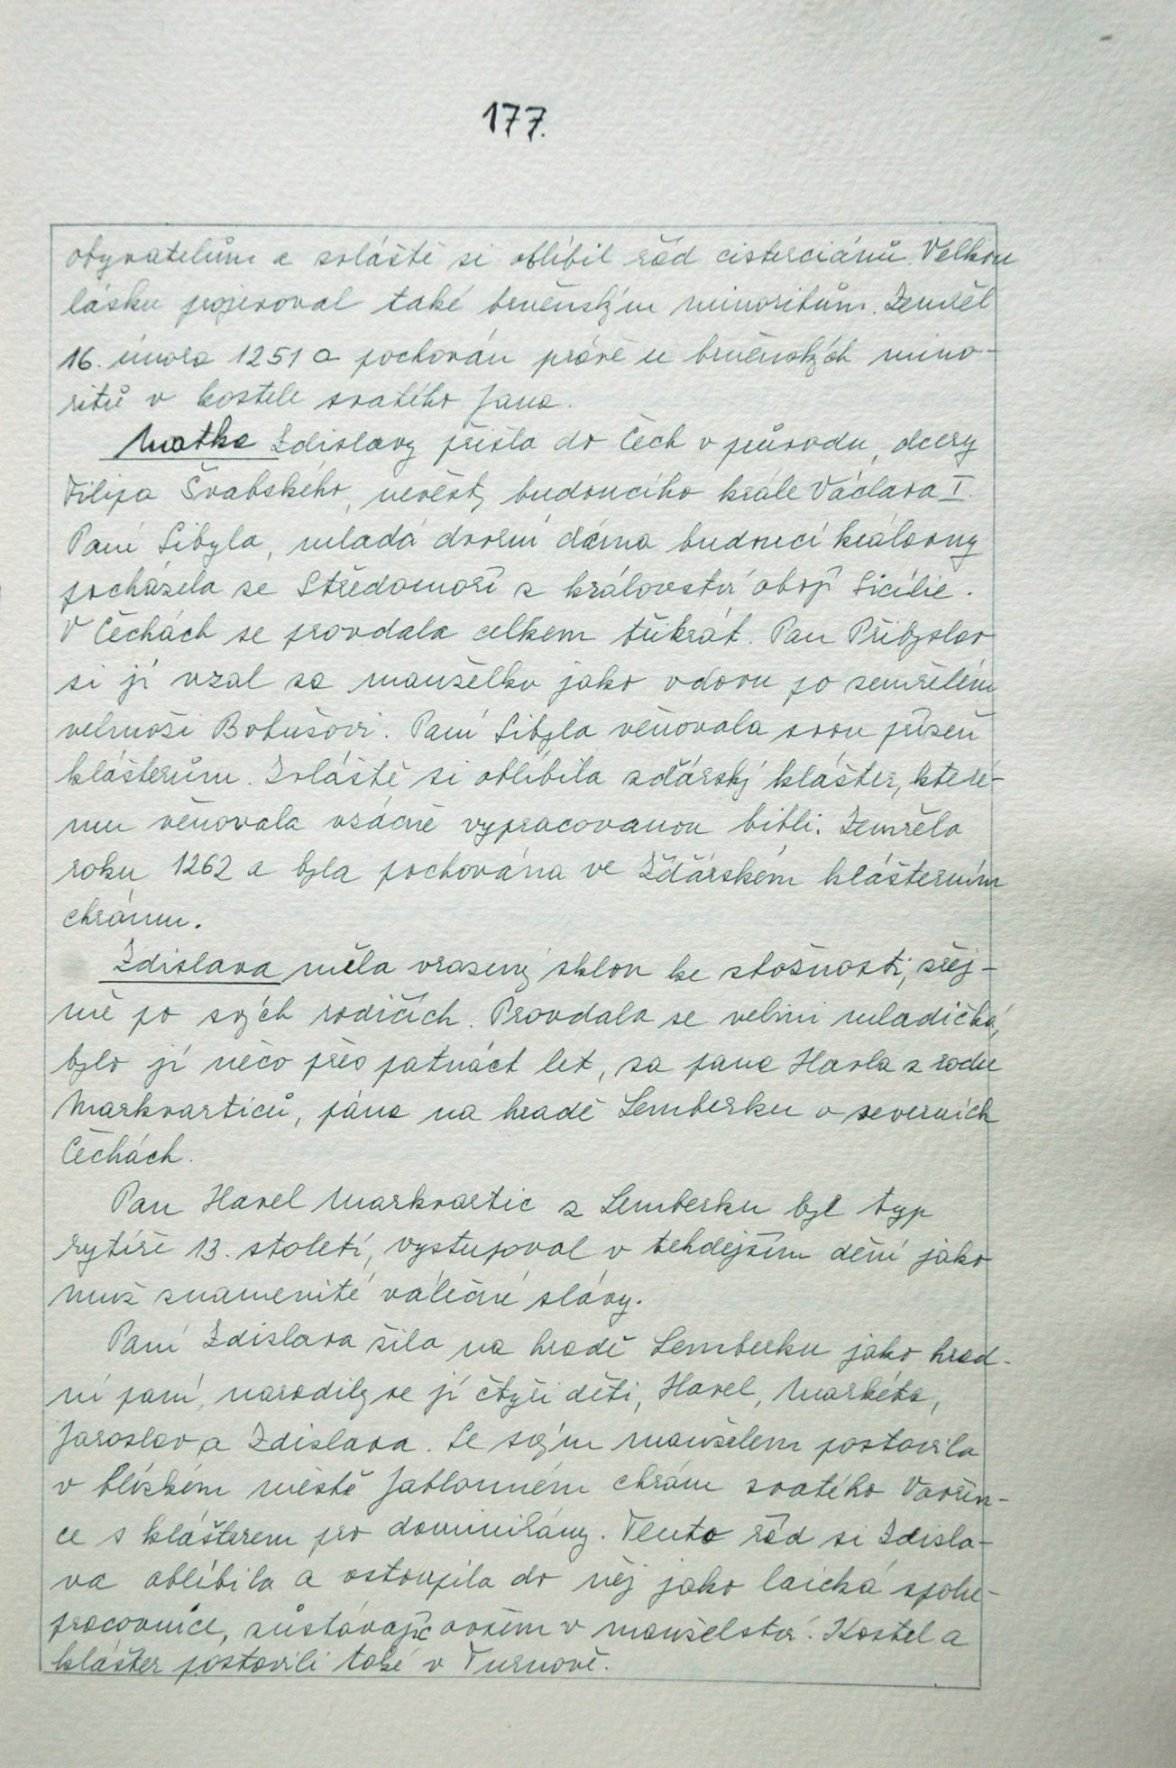 177.
obyvatelům a zvláště si oblíbil řád cisterciánů. Velkou
lásku projevoval také brněnským minoritům. Zemřel
16. února 1251 a pochován právě u brněnských mino-
ritů v kostele svatého Jana.
Matka Zdislavy přišla do Čech v průvodu, dcery
Filipa Švábského, nevěsty budoucího krále Václava I.
Paní Sibyla, mladá dvorní dáma budoucí královny
pocházela ze Středomoří z království obojí Sicílie.
V Čechách se provdala celkem třikrát. Pan Přibyslav
si ji vzal za manželku jako vdovu po zemřelém
velmoži Bohušovi. Paní Sibyla věnovala svou přízeň
klášterům. Zvláště si oblíbila žďárský klášter, které-
mu věnovala vzácně vypracovanou bibli. Zemřela
roku 1262 a byla pochována ve Žďárském klášterním
chrámu.
Zdislava měla vrozený sklon ke zbožnosti, zřej-
mě po svých rodičích. Provdala se velmi mladičká,
bylo jí něco přes patnáct let, za pana Havla z rodu
Markvarticů, pána na hradě Lemberku v severních
Čechách.
Pan Havel Markvartic z Lemberku byl typ
rytíře 13. století, vystupoval v tehdejším dění jako
muž znamenité válečné slávy.
Paní Zdislava žila na hradě Lemberku jako hrad-
ní paní, narodily se jí čtyři děti, Havel, Markéta,
Jaroslav a Zdislava. Se svým manželem postavila
v blízkém městě Jablonném chrám svatého Vavřin-
ce s klášterem pro dominikány. Tento řád si Zdisla-
va oblíbila a vstoupila do něj jako laická spolu-
pracovnice, zůstávajíc ovšem v manželství. Kostel a
klášter postavili také v Turnově.